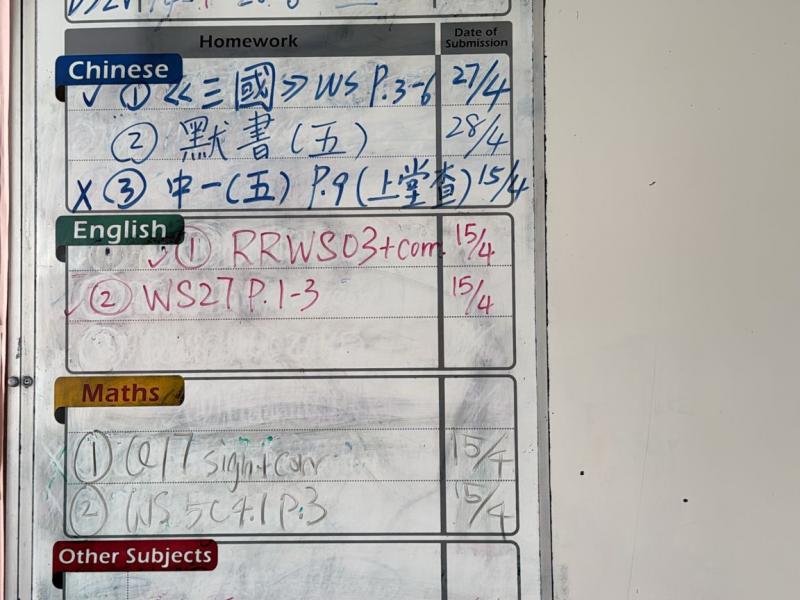 Homework Date of Submission
Chinese
✓ ① 《三國》 WS P.3-6 27/4
② 默書(五) 28/4
X ③ 中一(五) P.9 (上堂查) 15/4
English
✓ ① RRWS03+corr 15/4
✓ ② WS27 P.1-3 15/4
Maths
① Q17 sign+corr 15/4
② WS 5C4.1 P.3 15/4
Other Subjects